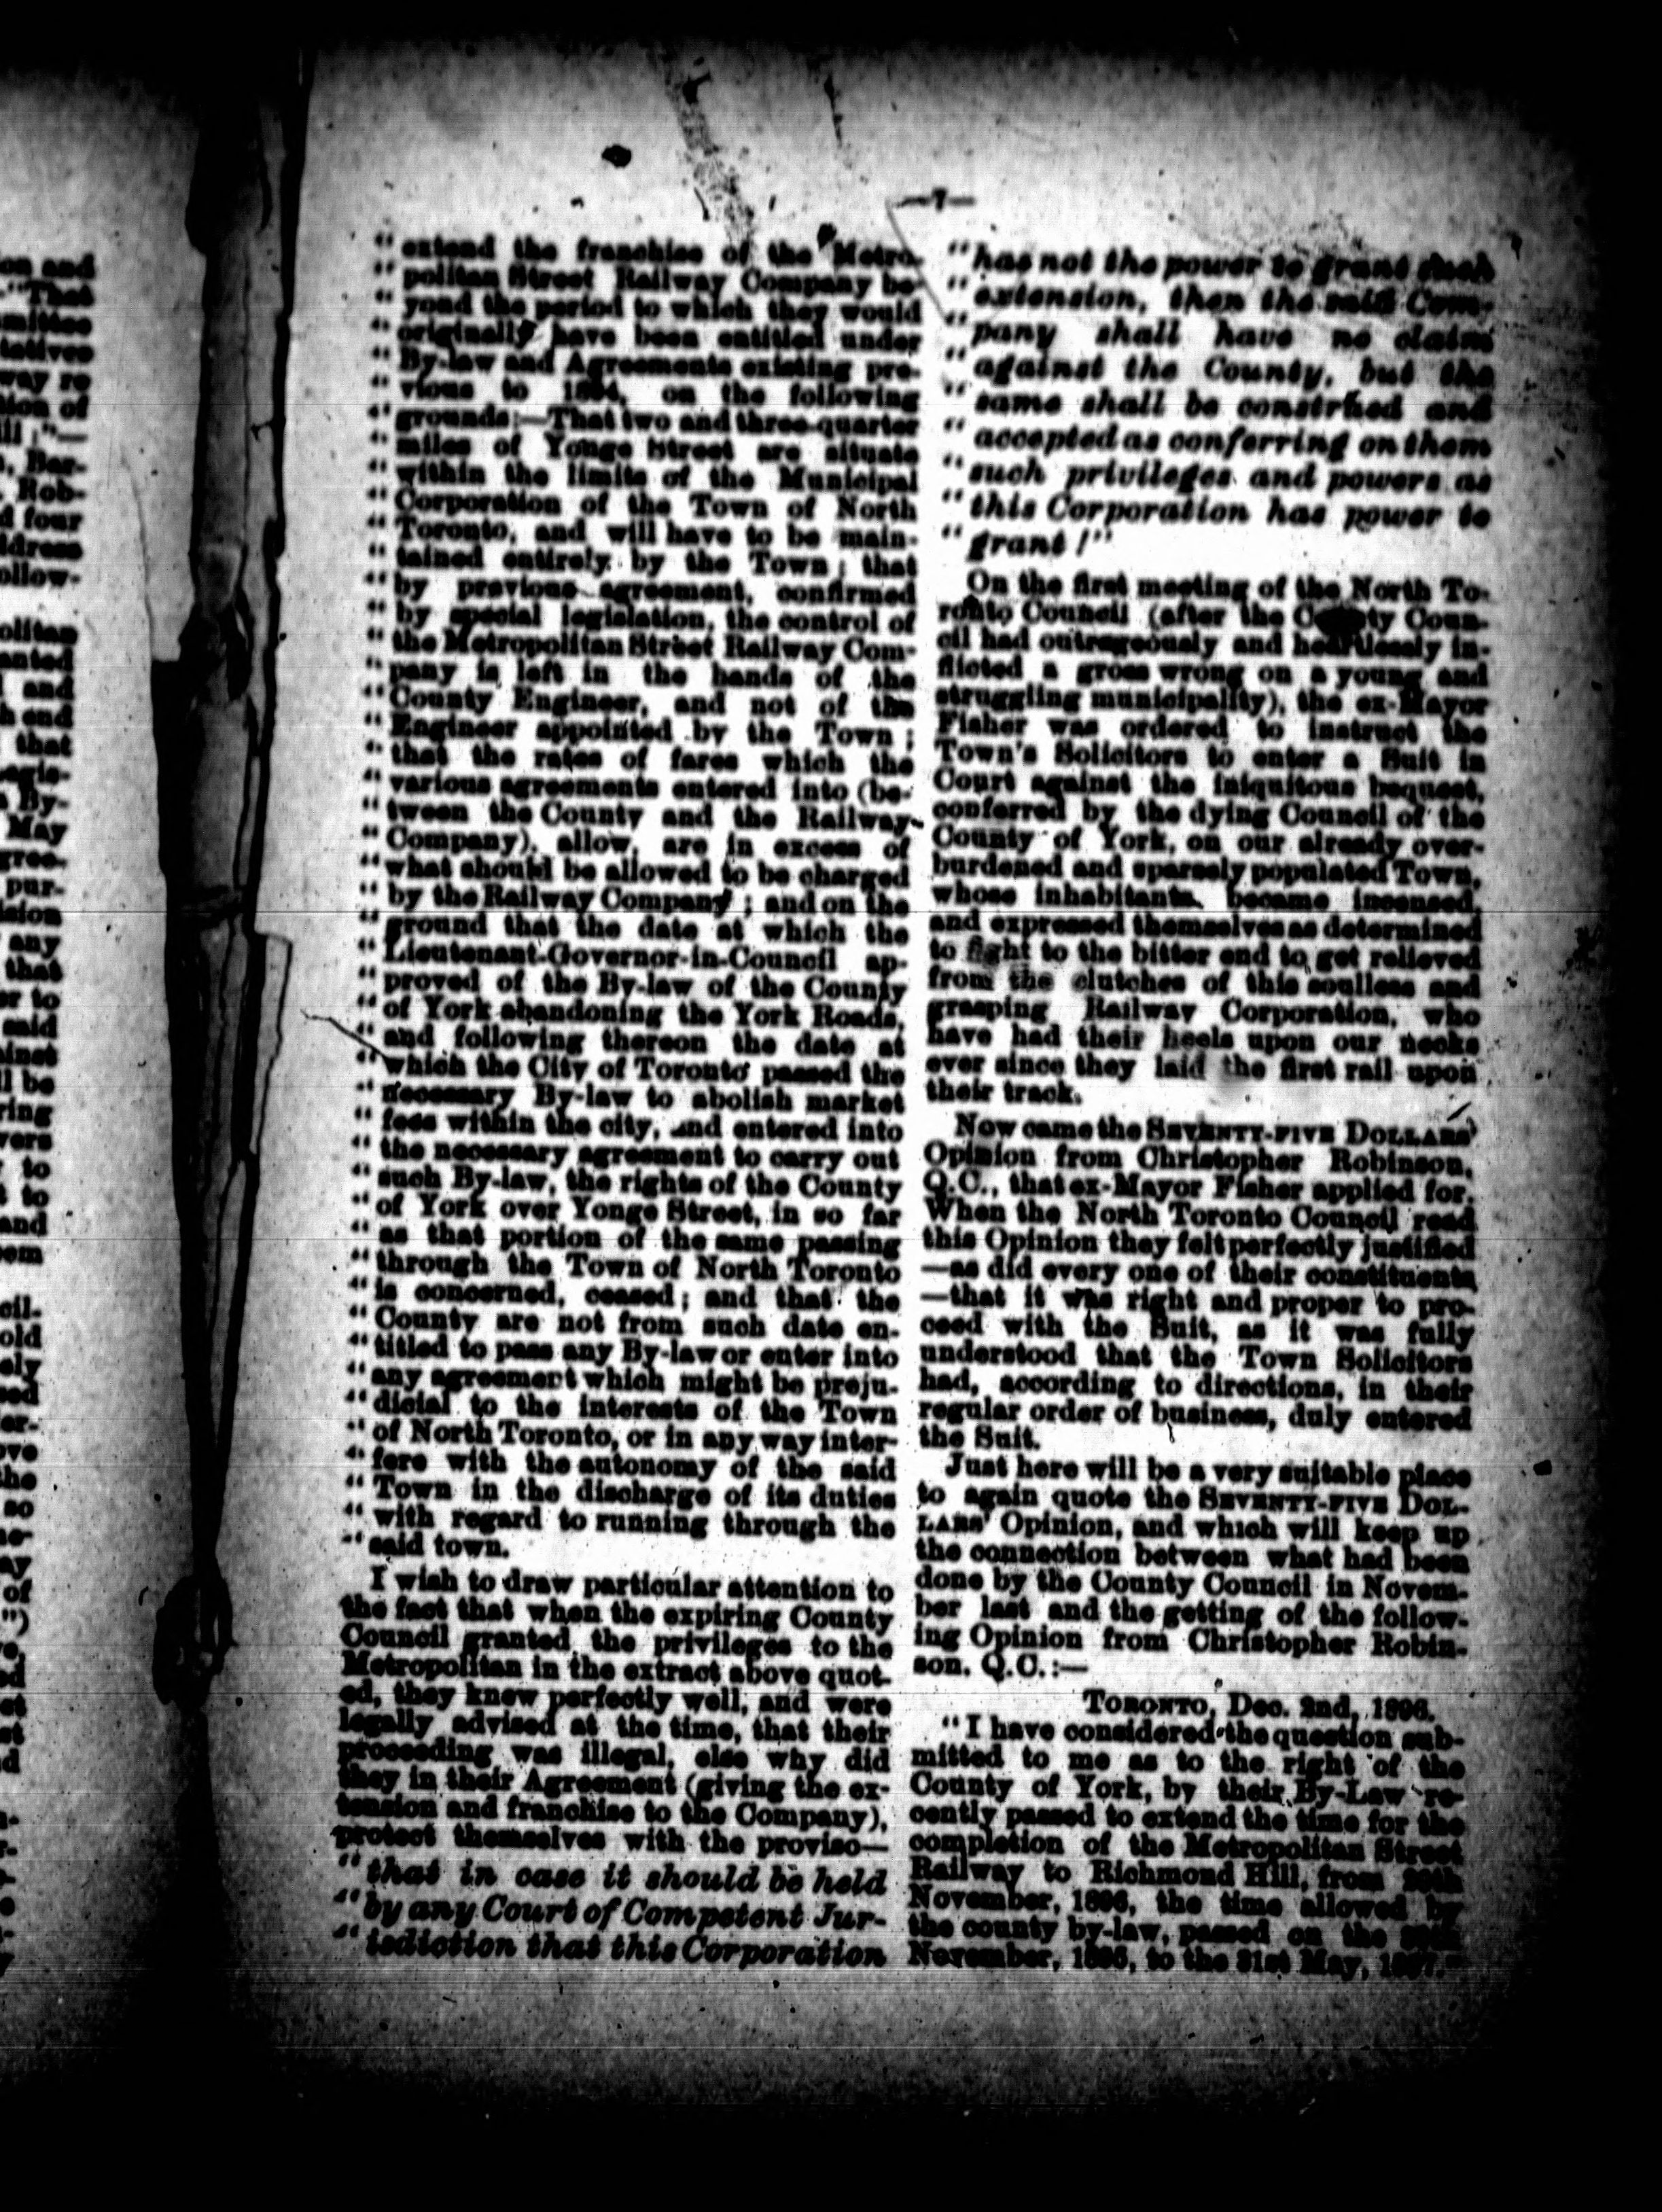 —7—
"extend the franchise of the Metro-
"politan Street Railway Company be-
"yond the period to which they would
"originally have been entitled under
"By-law and Agreements existing pre-
"vious to 1894, on the following
"grounds:—That two and three-quarter
"miles of Yonge Street are situate
"within the limits of the Municipal
"Corporation of the Town of North
"Toronto, and will have to be main-
"tained entirely by the Town; that
"by previous agreement, confirmed
"by special legislation, the control of
"the Metropolitan Street Railway Com-
"pany is left in the hands of the
"County Engineer, and not of the
"Engineer appointed by the Town;
"that the rates of fares which the
"various agreements entered into (be-
"tween the County and the Railway
"Company), allow, are in excess of
"what should be allowed to be charged
"by the Railway Company; and on the
"ground that the date at which the
"Lieutenant-Governor-in-Council ap-
"proved of the By-law of the County
"of York abandoning the York Roads,
"and following thereon the date at
"which the City of Toronto passed the
"necessary By-law to abolish market
"fees within the city, and entered into
"the necessary agreement to carry out
"such By-law, the rights of the County
"of York over Yonge Street, in so far
"as that portion of the same passing
"through the Town of North Toronto
"is concerned, ceased; and that the
"County are not from such date en-
"titled to pass any By-law or enter into
"any agreement which might be preju-
"dicial to the interests of the Town
"of North Toronto, or in any way inter-
"fere with the autonomy of the said
"Town in the discharge of its duties
"with regard to running through the
"said town.
I wish to draw particular attention to
the fact that when the expiring County
Council granted the privileges to the
Metropolitan in the extract above quot-
ed, they knew perfectly well, and were
legally advised at the time, that their
proceeding was illegal, else why did
they in their Agreement (giving the ex-
tension and franchise to the Company),
protect themselves with the proviso—
"that in case it should be held
"by any Court of Competent Jur-
"isdiction that this Corporation
"has not the power to grant such
"extension, then the said Com-
"pany shall have no claim
"against the County, but the
"same shall be construed and
"accepted as conferring on them
"such privileges and powers as
"this Corporation has power to
"grant!"
On the first meeting of the North To-
ronto Council (after the County Coun-
cil had outrageously and heartlessly in-
flicted a gross wrong on a young and
struggling municipality), the ex-Mayor
Fisher was ordered to instruct the
Town's Solicitors to enter a Suit in
Court against the iniquitous bequest,
conferred by the dying Council of the
County of York, on our already over-
burdened and sparsely populated Town,
whose inhabitants became incensed,
and expressed themselves as determined
to fight to the bitter end to get relieved
from the clutches of this soulless and
grasping Railway Corporation, who
have had their heels upon our necks
ever since they laid the first rail upon
their track.
Now came the SEVENTY-FIVE DOLLARS'
Opinion from Christopher Robinson,
Q.C., that ex-Mayor Fisher applied for.
When the North Toronto Council read
this Opinion they felt perfectly justified
—as did every one of their constituents
—that it was right and proper to pro-
ceed with the Suit, as it was fully
understood that the Town Solicitors
had, according to directions, in their
regular order of business, duly entered
the Suit.
Just here will be a very suitable place
to again quote the SEVENTY-FIVE DOL-
LARS' Opinion, and which will keep up
the connection between what had been
done by the County Council in Novem-
ber last and the getting of the follow-
ing Opinion from Christopher Robin-
son, Q.C.:—
TORONTO, Dec. 2nd, 1896.
"I have considered the question sub-
mitted to me as to the right of the
County of York, by their By-Law re-
cently passed to extend the time for the
completion of the Metropolitan Street
Railway to Richmond Hill, from
November, 1896, the time allowed by
the county by-law, passed on the
November, to the 31st May, 1897."